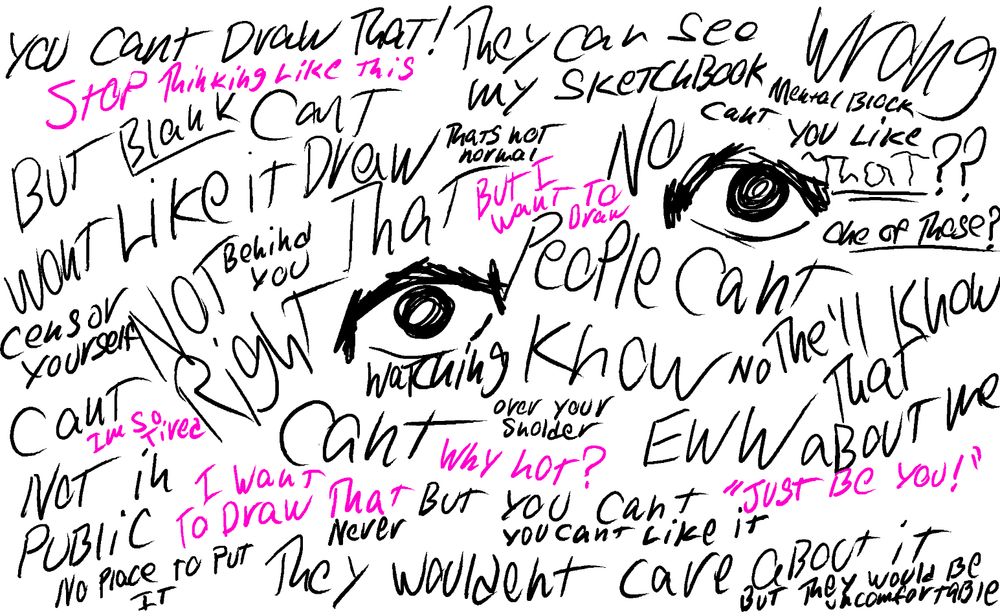 YOU CANT DRAW THAT!
STOP Thinking Like This
They can see
my SKETCHBOOK
Wrong
BUT Blank CANT
WONT LIKE it DRAW
THAT
Thats not
normal
BUT I
WANT TO
Draw
NO
Mental Block
CANT YOU LIKE
THAT??
one of Those?
Behind
YOU
NOT
RighT
censor
yourself
PEOPLE Cant
Know
WATCHING
No
The'll Know
That
ABOUT me
CANT
Im so
Tired
Cant
over your
Sholder
EWW
NOT in
PUBLIC
Why not?
I WANT
TO DRAW THAT
BUT YOU CANT
"JUST BE YOU!"
Never
YOU CANT LIKE iT
NO PLACE TO PUT
IT
They wouldent care aBOUT iT
BUT They would BE
uncomforTABLE